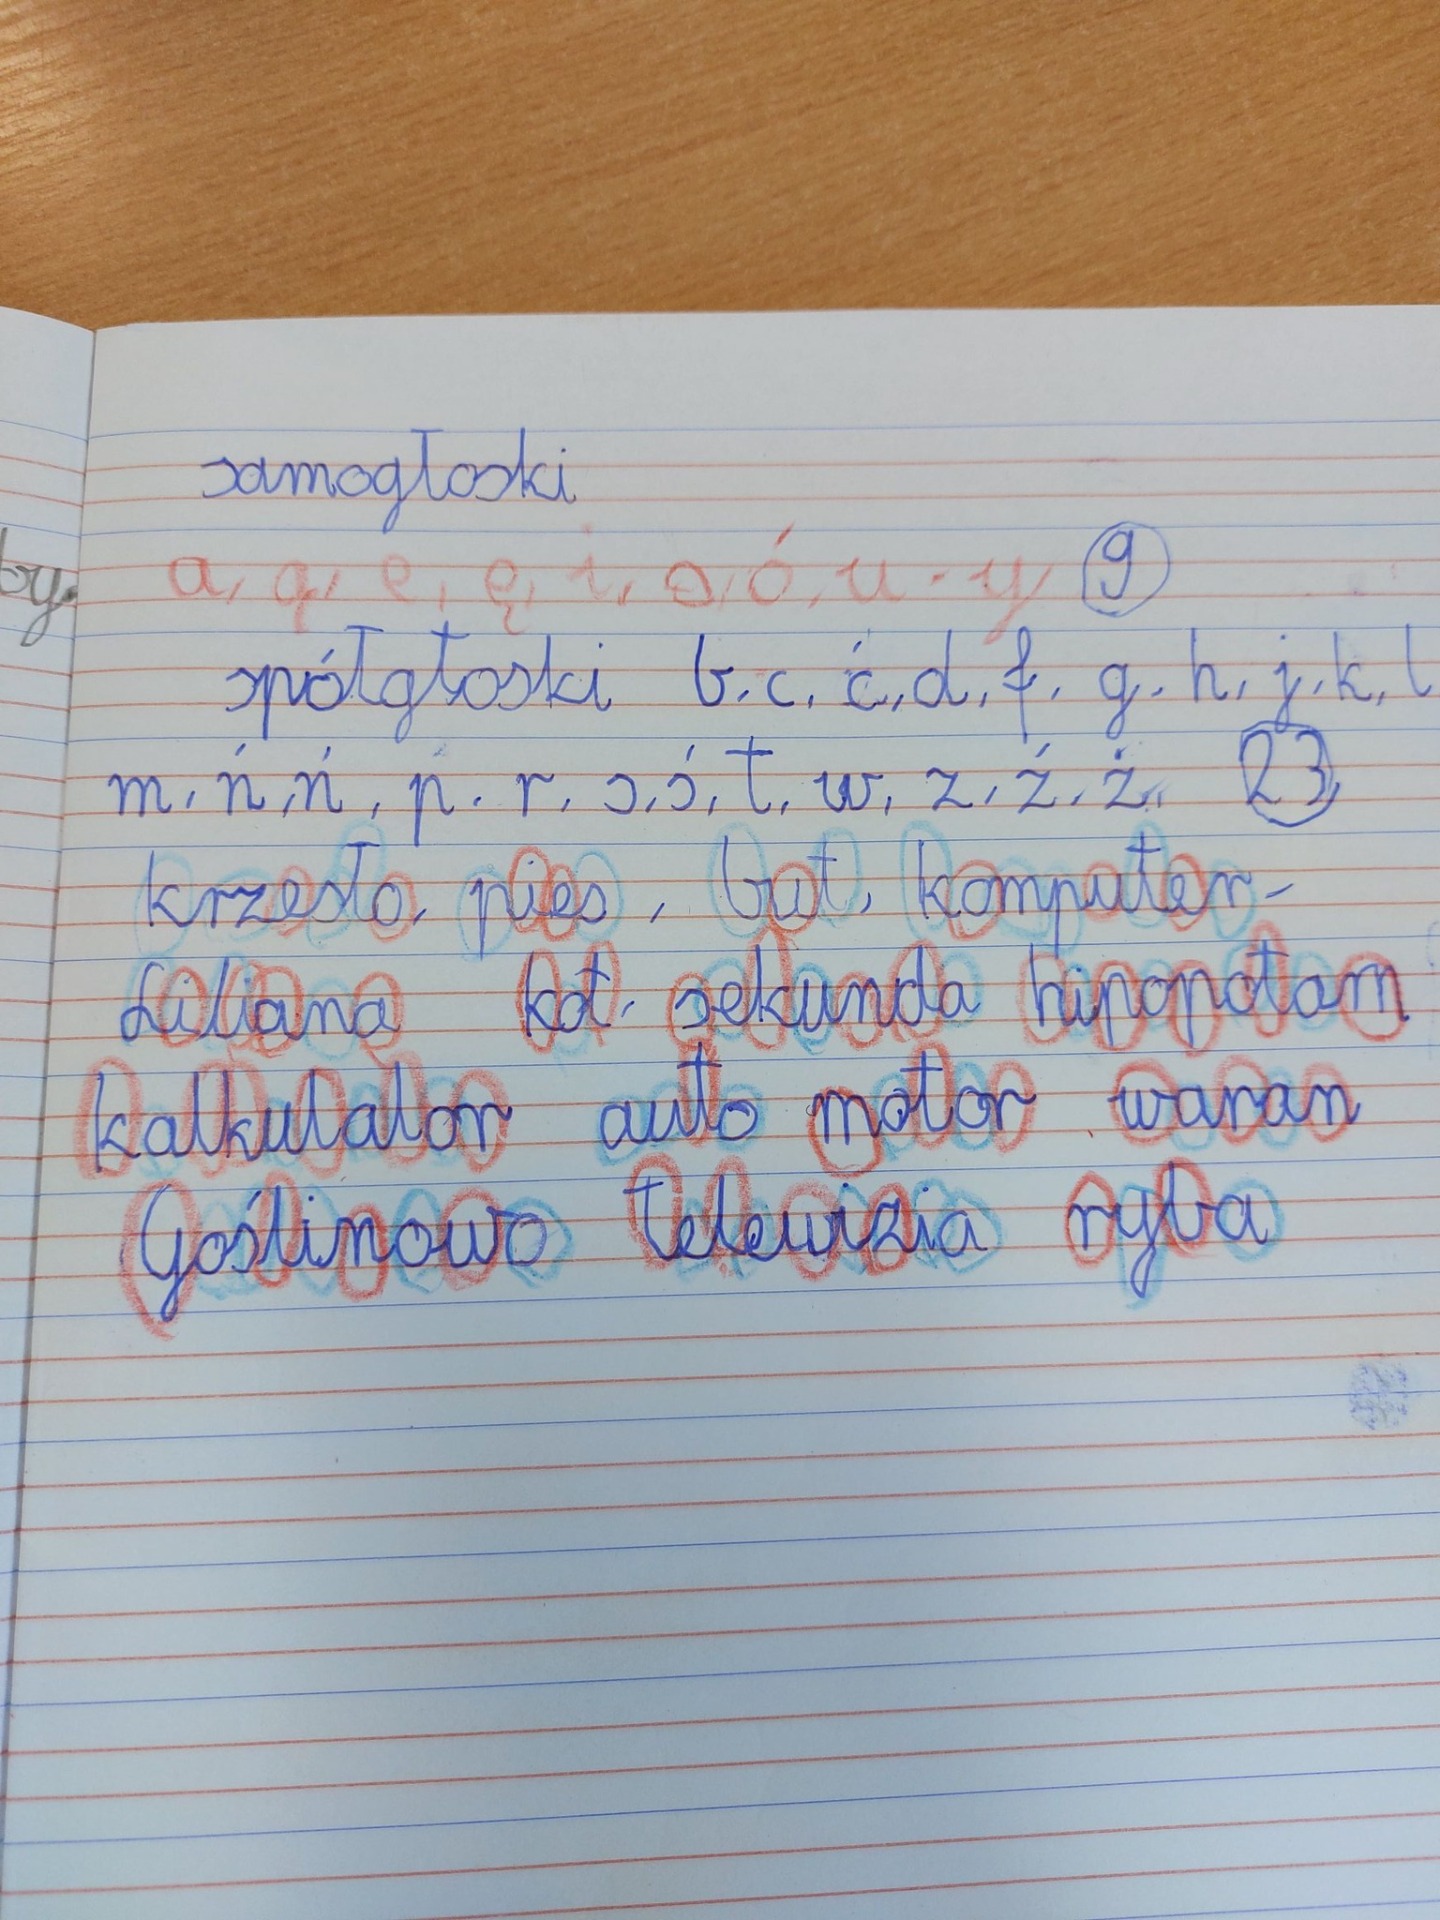 samogłoski
by.
a, ą, e, ę, i, o, ó, u, y 9
spółgłoski b, c, ć, d, f, g, h, j, k, l
m, ń, ń, p, r, s, ś, t, w, z, ź, ż, 23
krzesło, pies, but, komputer-
Liliana kot, sekunda hipopotam
kalkulator auto motor waran
Goślinowo telewizia ryba